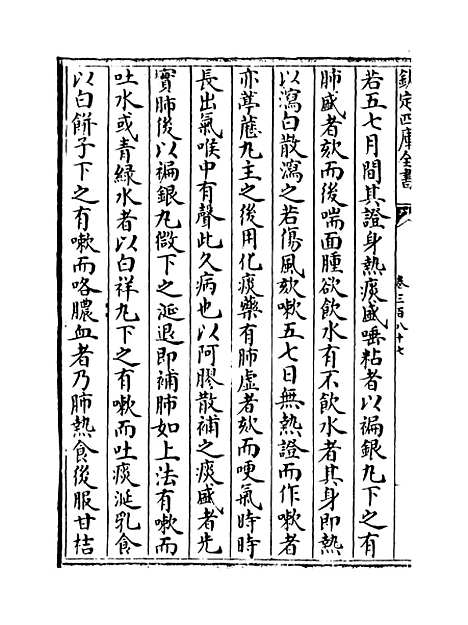 欽定四庫全書
卷三百八十七
若五七月間其證身熱痰盛唾粘者以褊銀丸下之有
肺盛者欬而後喘面腫欲飲水有不飲水者其身即熱
以瀉白散瀉之若傷風欬嗽五七日無熱證而作嗽者
亦葶藶丸主之後用化痰藥有肺虛者欬而哽氣時時
長出氣喉中有聲此久病也以阿膠散補之痰盛者先
實肺後以褊銀丸㣲下之涎退即補肺如上法有嗽而
吐水或青緑水者以白祥丸下之有嗽而吐痰涎乳食
以白餅子下之有嗽而咯膿血者乃肺熱食後服甘桔